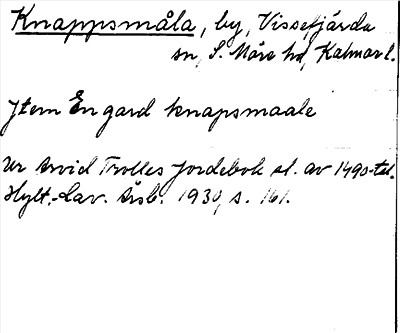 Knappsmåla, by, Vissefjärda
sn, S. Möre hd, Kalmar l.
Jtem En gard knapsmaale
Ur Arvid Trolles Jordebok sl. av 1490-tal.
Hylt.-Cav. Årsb. 1930, s. 161.